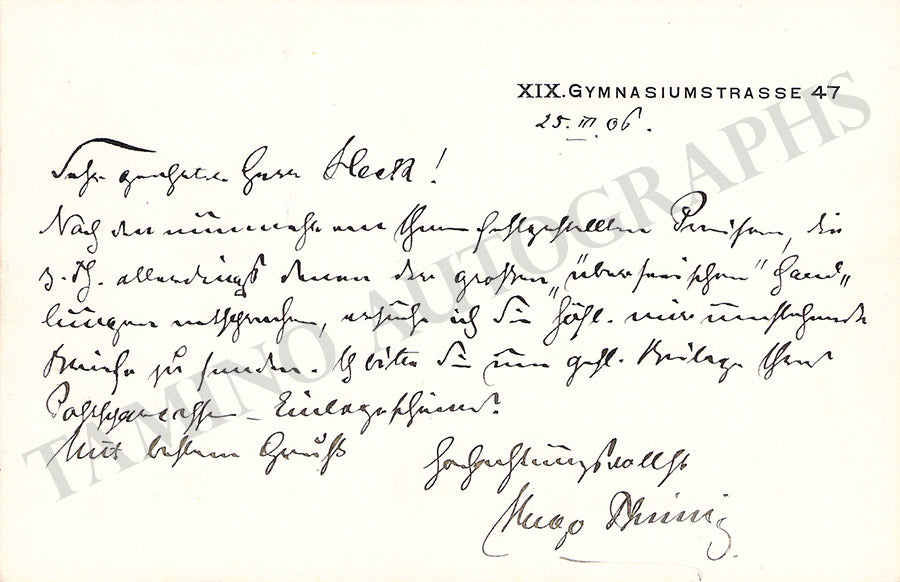 XIX. GYMNASIUMSTRASSE 47
25. III. 06.
Sehr geehrter Herr Heck!
Nach den nunmehr von Ihnen festgestellten Preisen, die
z. Th. allerdings denen der großen „überseeischen" Hand„
lungen entsprechen, ersuche ich Sie höfl. mir umstehende
zu senden. Ich bitte Sie um gefl. Beilage Ihres
Postsparcassen-Einlagescheines.
Mit bestem Gruß
Hochachtungsvollst
Hugo Thimig
TAMINO AUTOGRAPHS